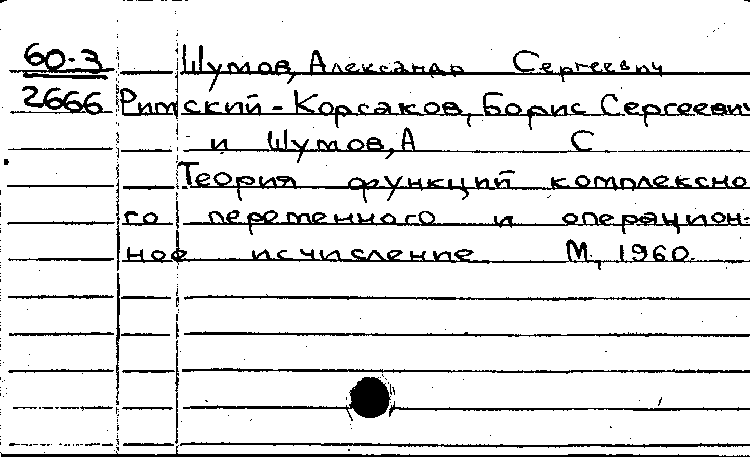 60-3 Шумов, Александр Сергеевич
2666 Римский-Корсаков, Борис Сергеевич
и Шумов, А С.
Теория функций комплексно
го переменного и операцион-
ное исчисление М, 1960.